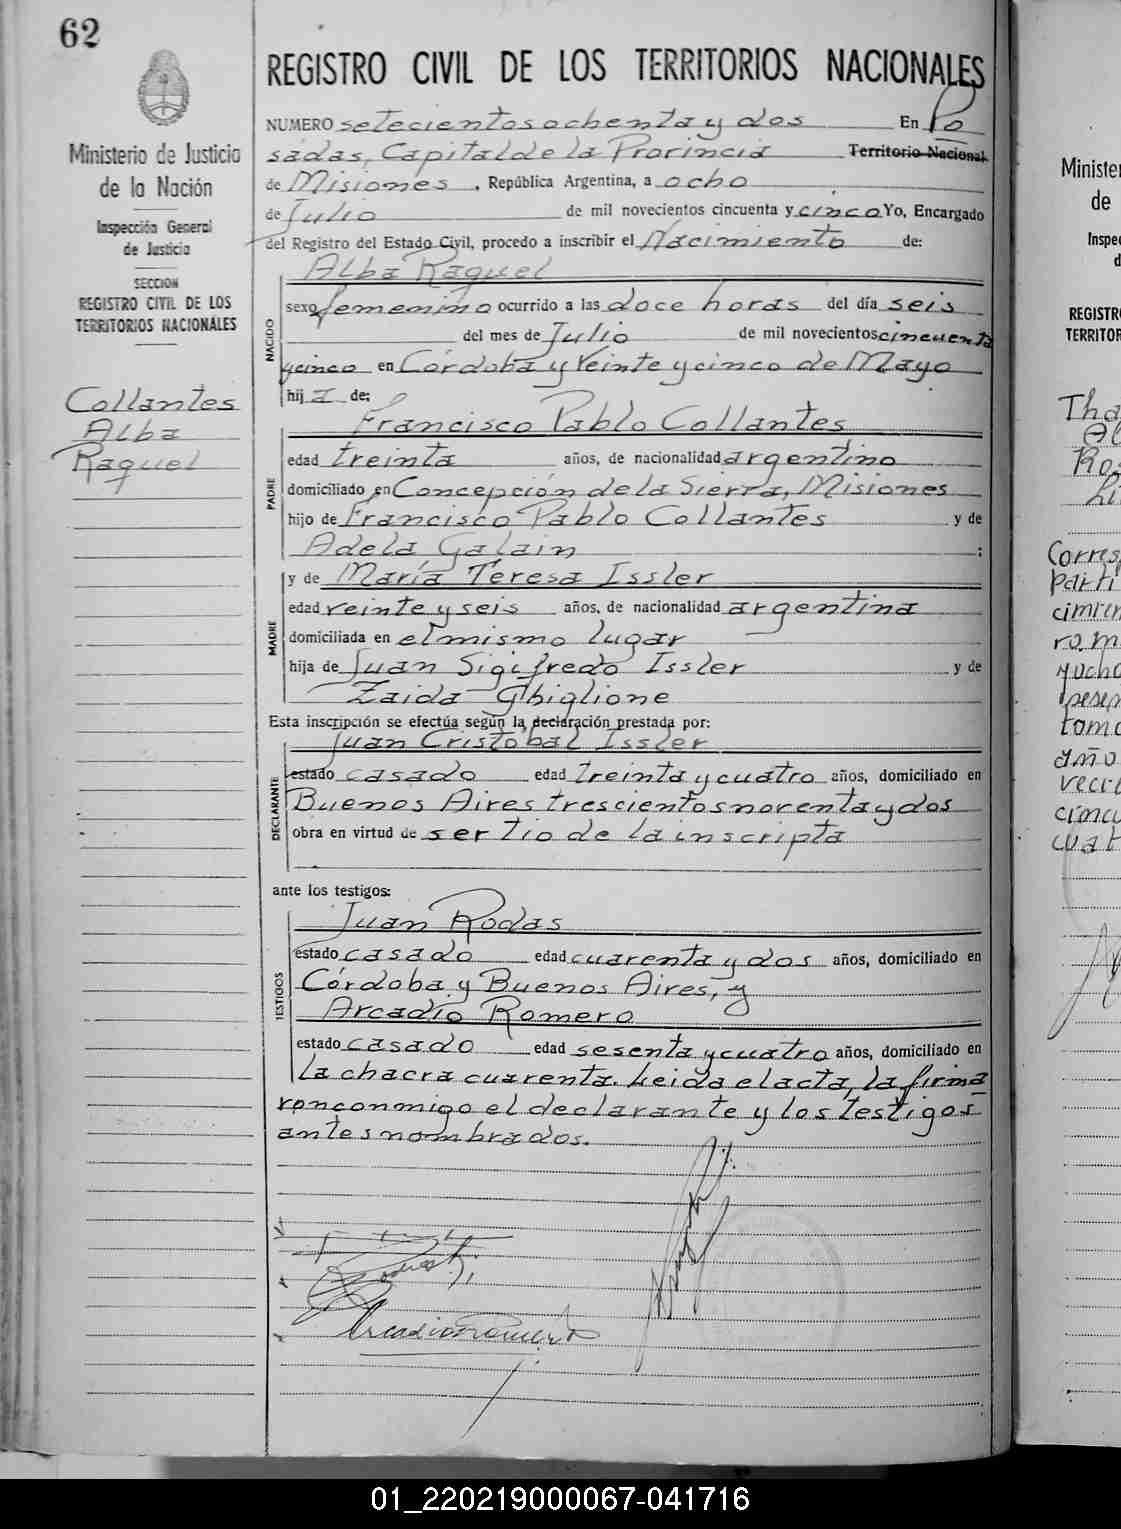 62
Ministerio de Justicia
de la Nación
Inspección General
de Justicia
SECCION
REGISTRO CIVIL DE LOS
TERRITORIOS NACIONALES
Collantes
Alba
Raquel
REGISTRO CIVIL DE LOS TERRITORIOS NACIONALES
NUMERO setecientos ochenta y dos En Po
sadas, Capital de la Provincia Territorio Nacional
de Misiones, República Argentina, a ocho
de Julio de mil novecientos cincuenta y cinco Yo, Encargado
del Registro del Estado Civil, procedo a inscribir el Nacimiento de:
Alba Raquel
NACIDO
sexo femenino ocurrido a las doce horas del día seis
del mes de Julio de mil novecientos cincuenta
y cinco en Córdoba y Veinte y cinco de Mayo
hija de:
Francisco Pablo Collantes
PADRE
edad treinta años, de nacionalidad argentino
domiciliado en Concepción de la Sierra, Misiones
hijo de Francisco Pablo Collantes y de
Adela Galain ;
y de María Teresa Issler
MADRE
edad veinte y seis años, de nacionalidad argentina
domiciliada en el mismo lugar
hija de Juan Sigifredo Issler y de
Zaida Ghiglione
Esta inscripción se efectúa según la declaración prestada por:
Juan Cristobal Issler
DECLARANTE
estado casado edad treinta y cuatro años, domiciliado en
Buenos Aires trescientos noventa y dos
obra en virtud de ser tio de la inscripta
ante los testigos:
Juan Rodas
TESTIGOS
estado casado edad cuarenta y dos años, domiciliado en
Córdoba y Buenos Aires, y
Arcadio Romero
estado casado edad sesenta y cuatro años, domiciliado en
la chacra cuarenta. Leida el acta, la firma
ron conmigo el declarante y los testigos
antes nombrados.
Arcadio Romero
Minister
de
Inspe
d
REGISTR
TERRITOR
Corres
parti
tomo
año
01_220219000067-041716